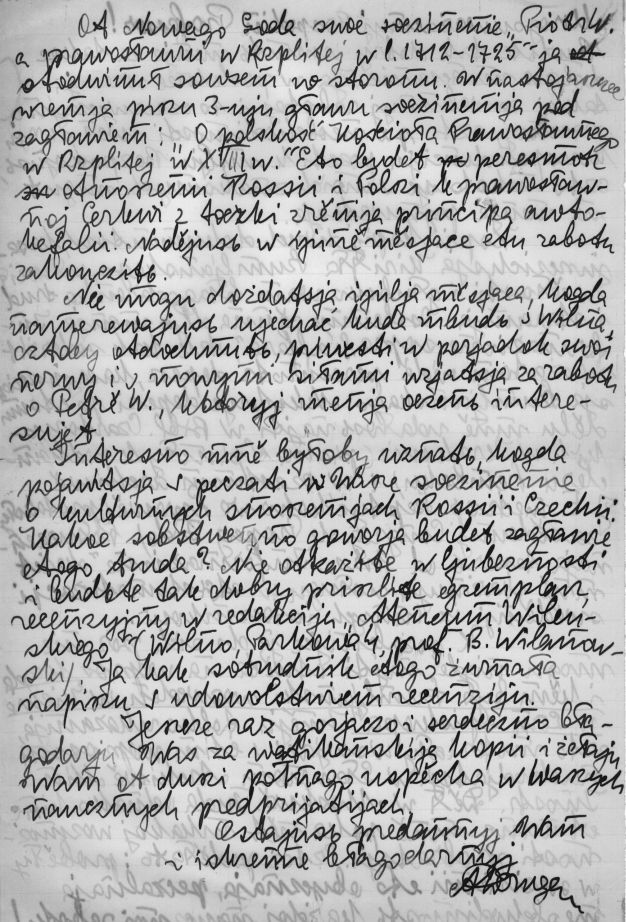 Ot Nowego Goda swoé soczinenie „Piotr W.
a prawosławii w Rzplitej w l. 1712-1725" ja
otodwinuł sowsem w storonu. W nastojaszczee
wremja piszu 3-uju gławu soczinenija pod
zagławiem: „O polskość Kościoła Prawosławnego
w Rzplitej w XVIII w." Eto budet peresmotr
otnoszenii Rossii i Polski k prawosław-
noj Cerkwi z toczki zrěnija principa awto-
kefalii. Nadějuś w ijuně měsjace etu rabotu
zakonczit'.
Nie mogu dożdatsja ijulja měsjaca, kogda
namerewajuś ujechać kuda nibud' s Wilna,
cztoby otdochnut', priwesti w porjadok swoi
nerwy i s nowymi siłami wzjatsja za rabotu
o Petrě W., kotoryj menja oczeń intere-
sujet.
Interesno mně byłoby uznat', kogda
pojawitsja s peczati Wasze soczinenie
o kulturnych snoszenijach Rossii i Czechii.
Kakoe sobstwenno goworja budet zagławie
etogo truda? Nie otkażite w ljubeznosti
i budete tak dobry priszlite egzempljar
recenzyjny w redakciju „Ateneum Wileń-
skiego" (Wilno, Zarkowa 4, prof. B. Wilanow-
ski). Ja kak sotrudnik etogo żurnała
napiszu s udowolstwiem recenziju.
Jeszcze raz gorjaczo i serdeczno bła-
godarju Was za watikanskija kopii i żełaju
Wam ot duszi połnago uspěcha w Waszych
naucznych predprijatijach.
Ostajuś predannyj Wam
i iskrenne błagodarnyj